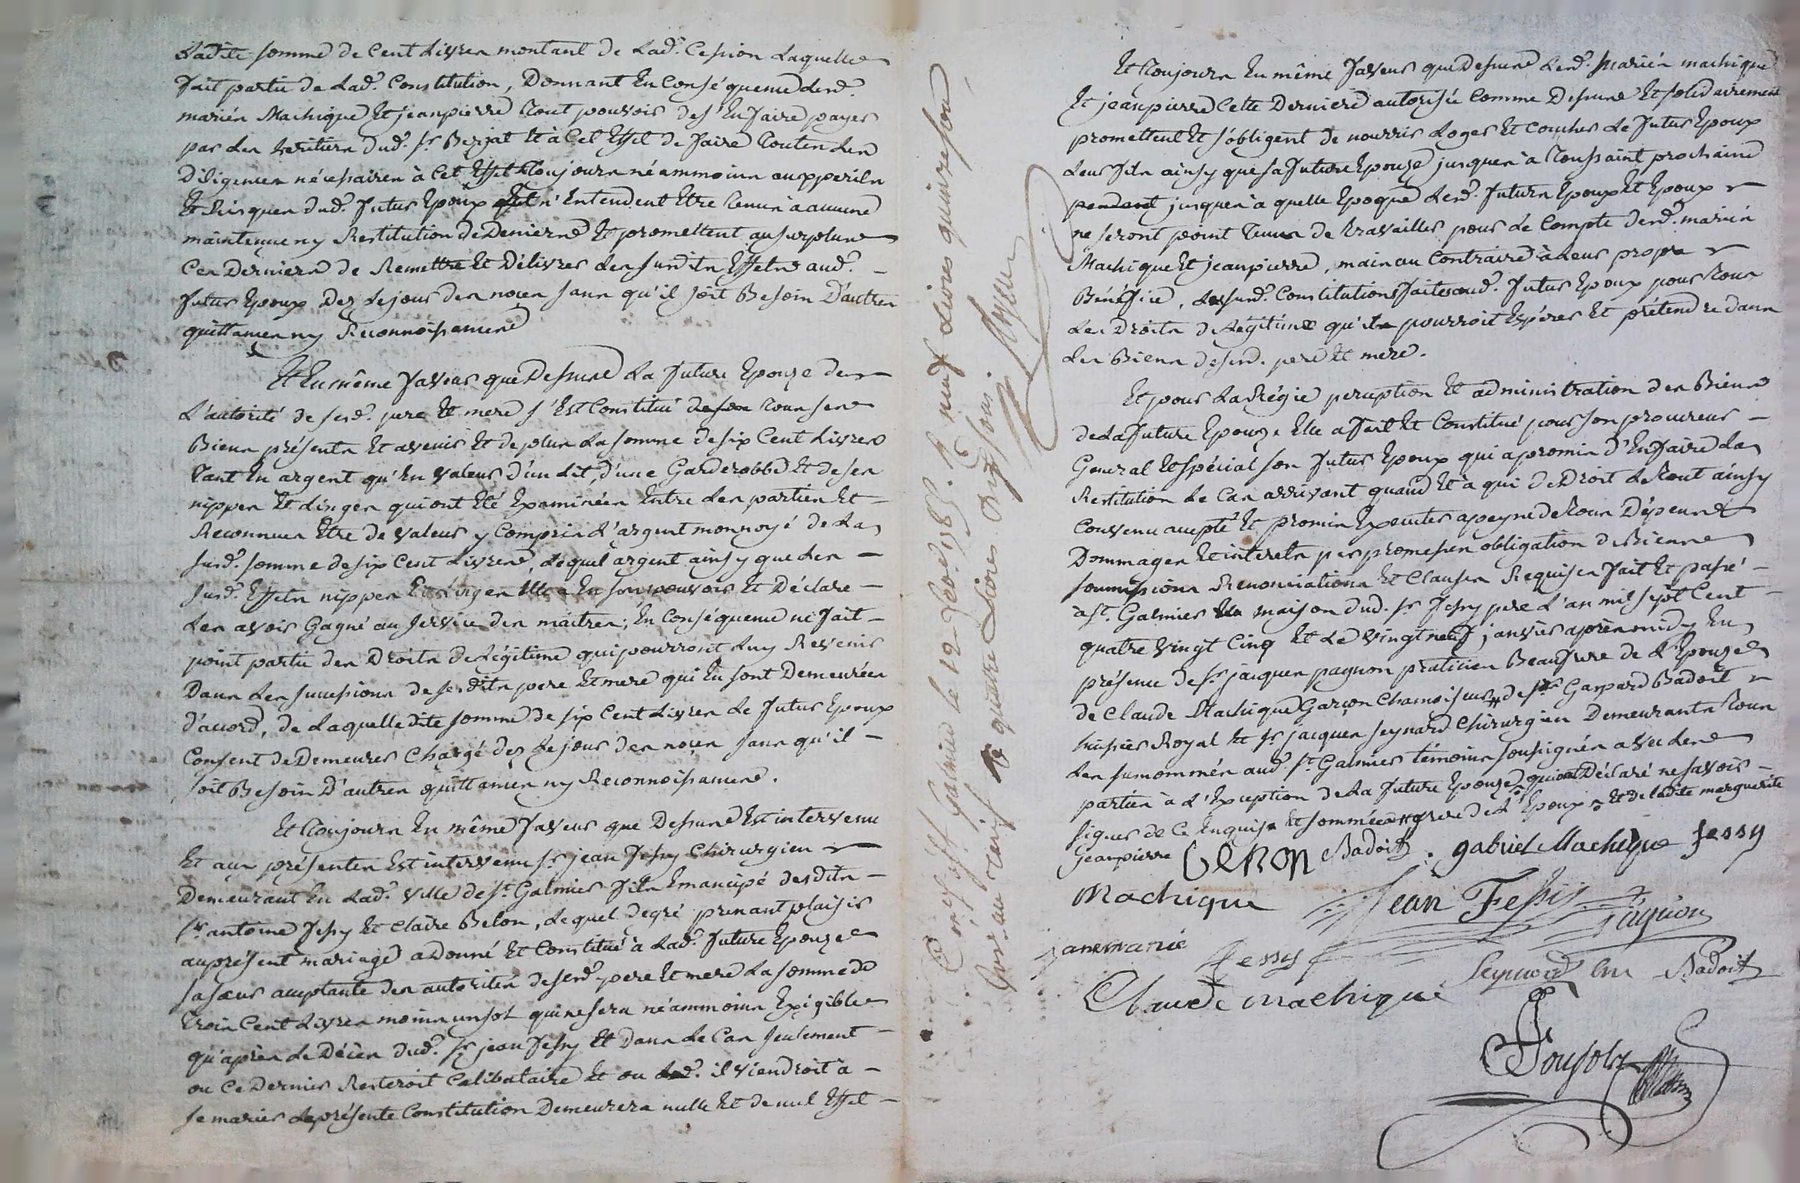 Ladite somme de Cent Livres montant de Lad. Cession Laquelle
fait partie de Lad. Constitution, Donnant En Conséquence Lesd.
mariés Machique Et jeanpierre tout pouvoir des En faire payer
par Les heritiers dud. Sr. Berjat Et à Cet Effet de faire toutes Les
Diligences nécessaires à Cet Effet toujours néammoins aux perils
Et Risques dud. futur Epoux n'Entendent Etre tenus à aucune
maintenue ny Restitution de Deniers Et promettent au surplus
Ces Derniers de Remettre Et Délivrer Les susdits Effets aud.
futur Epoux Dez Le jour des noces sans qu'il soit Besoin D'autres
quittances ny Reconnoissances
Et En même faveur que Dessus La future Epouze de
L'autorité de sesd. pere Et mere s'Est Constitué tous ses
Biens présents Et avenir Et de plus La somme de six Cent Livres
tant En argent qu'En valeur d'un Lit, d'une Garderobbe Et de ses
nippes Et Linges qui ont Eté Examinées Entre Les parties Et
Reconnues Etre de valeur y Compris L'argent monnoyé de La
susd. somme de six Cent Livres, Lequel argent ainsy que Les
susd. Effets nippes Et Linges Elle a En son pouvoir Et Déclare
Les avoir Gagné au service des maitres; En Conséquence ne fait
point partie des Droits de Légitime qui pourront Luy Revenir
Dans Les successions de sesdits pere Et mere qui En sont Demeurées
d'acord, de Laquelle dite somme de six Cent Livres Le futur Epoux
Consent de Demeurer Chargé dez Le jour des noces sans qu'il
soit Besoin D'autres quittances ny Reconnoissances.
Et toujours En même faveur que Dessus Est intervenu
Et aux présentes Est intervenu Sr. jean fessy Chirurgien
Demeurant En Lad. ville de St. Galmier fils Emancipé desdits
Sr. antoine fessy Et Claire Belon, Lequel degré prenant plaisir
au présent mariage a Donné Et Constitué à Lad. future Epouze
sa sœur acceptante des autorités de sesd. pere Et mere La somme de
trois Cent Livres moins un sol qui ne sera néammoins Exigible
qu'après Le Décès dud. Sr. jean fessy Et Dans Le Cas seulement
ou Ce Dernier Resteroit Celibataire Et ou Led. il viendroit à
se marier La présente Constitution Demeurera nulle Et de nul Effet
neuf Livres quinze sous
Gervais
Et toujours En même faveur que Dessus Lesd. mariés machique
Et jeanpierre Cette Derniere autorisée Comme Dessus Et solidairement
promettent Et s'obligent de nourrir Loger Et Coucher Le futur Epoux
Leur fils ainsy que sa future Epouze jusques à toussaint prochaine
jusques à quelle Epoque Lesd. futurs Epoux Et Epouze
ne seront point tenus de travailler pour Le Compte desd. mariés
Machique Et jeanpierre, mais au Contraire à Leur propre
Bénéfice, Lesusd. Constitutions faites aud. futur Epoux pour tous
Les Droits de Légitime qu'il pourroit Espérer Et prétendre dans
Les Biens desesd. pere Et mere.
Et pour La Régie perception Et administration des Biens
de La future Epouze Elle a fait Et Constitué pour son procureur
General Et spécial son futur Epoux qui a promis D'En faire La
Restitution Le Cas arrivant quand Et à qui de Droit Le tout ainsy
Convenu accepté Et promis Executer à peyne de tous Dépens
Dommages Et interets par promesses obligation de Biens
soumissions Renonciations Et Clauses Requises fait Et passé
à St. Galmier maison dud. Sr. fessy pere L'an mil sept Cent
quatre vingt Cinq Et Le vingt neuf janvier après midy En
présence de Sr. jacques pagnon praticien Beaufrere de L'Epouze
de Claude Machique Garçon Chamoiseur de Sr. Gaspard Badoit
huissier Royal Et Sr. jacques seynard Chirurgien Demeurants tous
Les susnommés aud. St. Galmier témoins soussignés avec Les
parties à L'Exception de La future Epouze qui ont Déclaré ne savoir
signer de Ce Enquise Et sommée Et de Ladite marguerite
jeanpierre GERON Badoit. gabriel Machique fessy
Machique Jean Fessy pagnon
janemarie fessy Seynard Badoit
Claude machique
Ponsot